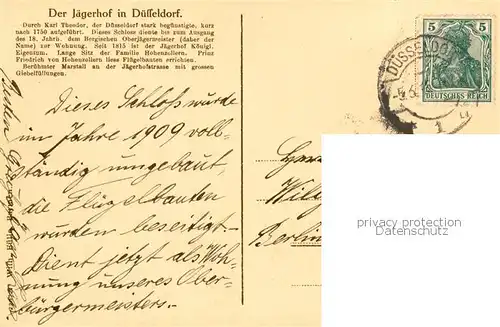 Der Jägerhof in Düsseldorf.
Durch Karl Theodor, der Düsseldorf stark begünstigte, kurz
nach 1750 aufgeführt. Dieses Schloss diente bis zum Ausgang
des 18. Jahrh. dem Bergischen Oberjägermeister (daher der
Name) zur Wohnung. Seit 1815 ist der Jägerhof Königl.
Eigentum. Lange Sitz der Familie Hohenzollern. Prinz
Friedrich von Hohenzollern liess Flügelbauten errichten.
Berühmter Marstall an der Jägerhofstrasse mit grossen
Giebelfüllungen.
5 5
DEUTSCHES REICH
DÜSSELDORF
1
Dieses Schloss wurde
im Jahre 1909 voll-
ständig umgebaut,
die Flügelbauten
wurden beseitigt.
Dient jetzt als Woh-
nung unseres Ober-
bürgermeisters.
Besten
Willy
Berlin
privacy protection
watermark